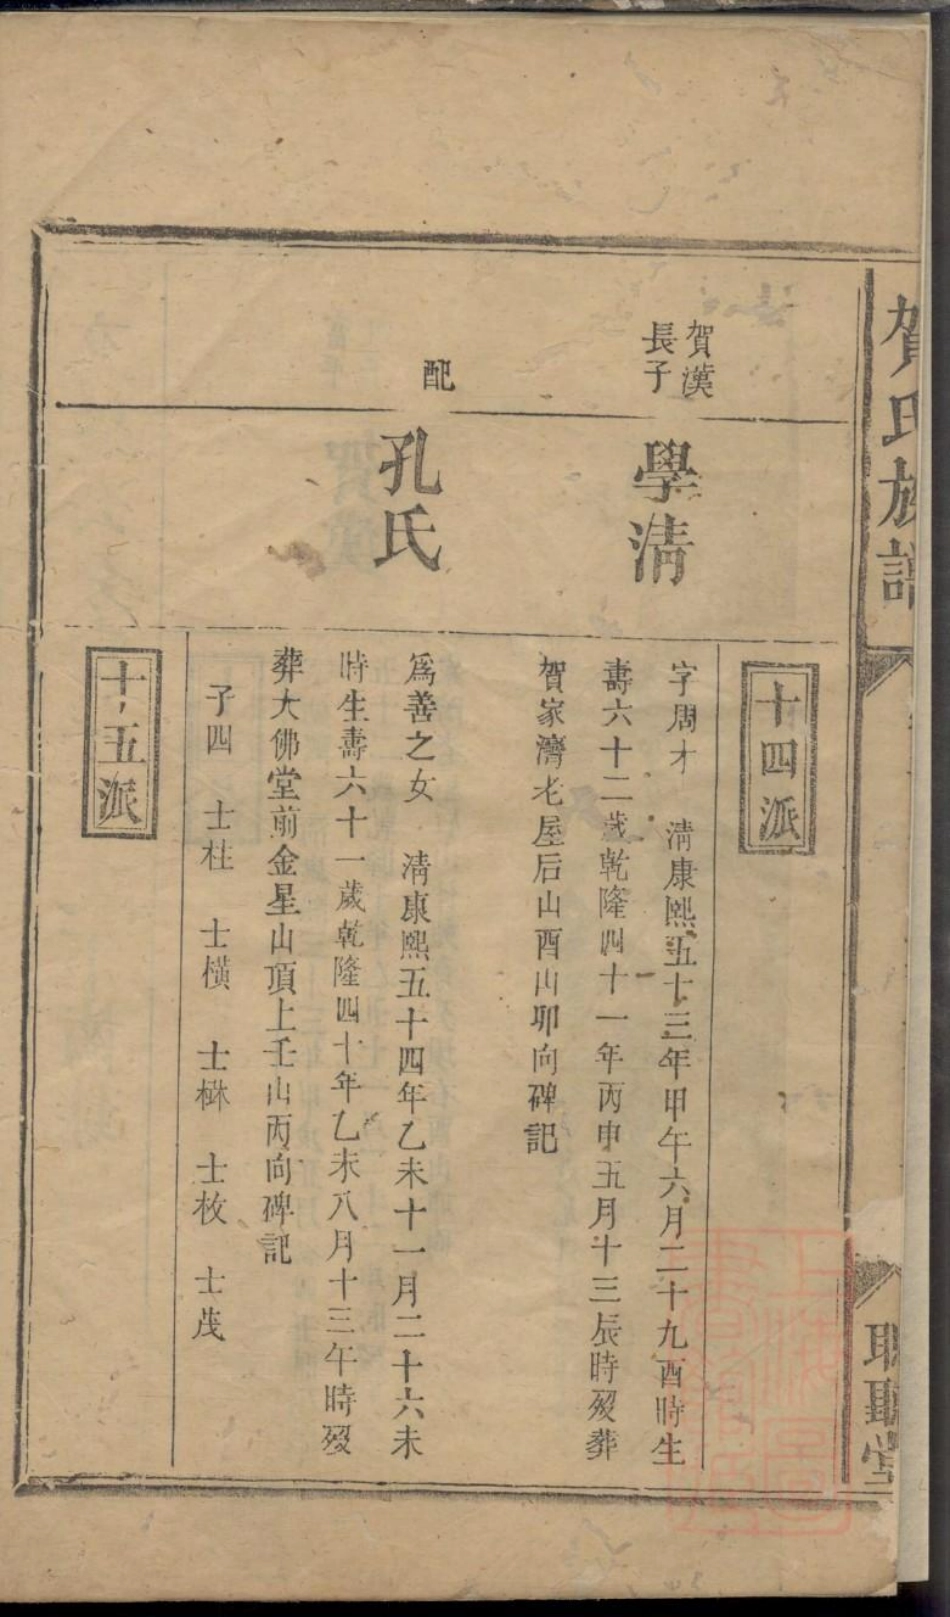 賀氏族譜
十四派
賀漢
長子
學淸
字周才　淸康熙五十三年甲午六月二十九酉時生
壽六十二歲乾隆四十一年丙申五月十三辰時歿葬
賀家灣老屋后山酉山卯向碑記
配
孔氏
爲善之女　淸康熙五十四年乙未十一月二十六未
時生壽六十一歲乾隆四十年乙未八月十三午時歿
葬大佛堂前金星山頂上壬山丙向碑記
子四　士柱　士横　士楙　士枚　士茂
十五派
聽堂